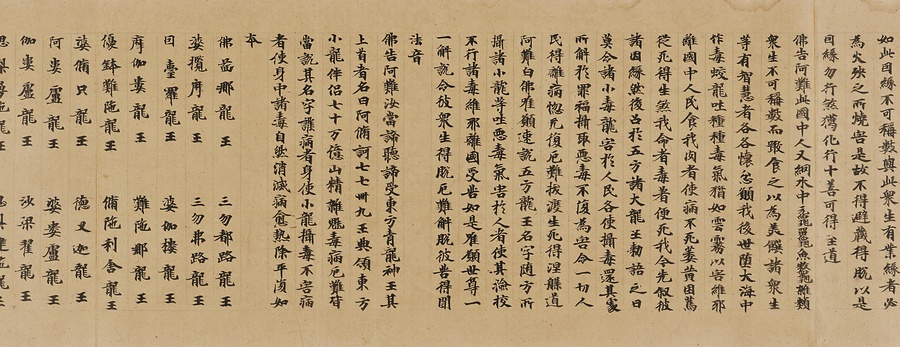 如此因緣不可稱數與此衆生有業緣者必
為火殃之所燒害是故不得避藏得脫以是
因緣勿行煞獵化行十善可得王道
佛告阿難此國中人又網水中黿鼉龜魚鱉雜類
衆生不可稱數而敢食之以為美饌諸衆生
等有智慧者各各懷忿願我後世墮大海中
作毒蛟龍吐種種毒氣猶如雲霧以害維耶
離國中人民食我肉者使病不死萎黃困篤
從死得生煞我命者毒著便死我今先假彼
諸因緣然後召於五方諸大龍王勅語之曰
莫令諸小毒龍害於人民各使攝毒還其家
所解於罪福攝録惡毒不復為害令一切人
民得離病惱充復厄難拔渡生死得涅槃道
阿難白佛唯願速說五方龍王名字隨方所
攝諸小龍等吐惡毒氣害於人者使其檢校
不行諸毒維耶離國受告如是唯願世尊一
一解說令彼衆生得脫厄難解脫彼苦得聞
法音
佛告阿難汝當諦聽諦受東方青龍神王其
上首者名曰阿脩訶七七卌九王典領東方
小龍伴侶七十万億山精雜魅毒病厄難皆
當說其名字護病者身使小龍攝毒不害病
者使身中諸毒自然消滅病愈熱除平復如
本
佛蓝那龍王 三勿都路龍王
婆攬摩龍王 三勿弗路龍王
田臺羅龍王 婆伽樓龍王
摩伽婁龍王 難陁那龍王
優鉢難陁龍王 脩陁利舍龍王
婆脩只龍王 德叉迦龍王
阿婁盧龍王 婆婁盧龍王
伽婁盧龍王 沙梁翟龍王